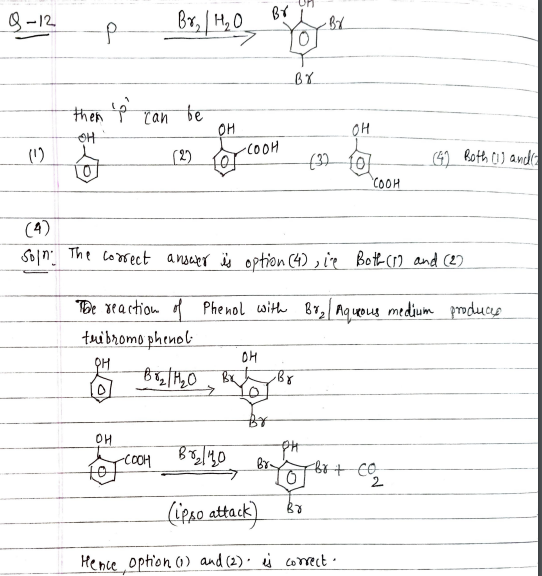 Q-12 P Br₂/H₂O → OH Br Br Br
then 'P' can be
(1) OH (2) OH COOH (3) OH COOH (4) Both (1) and (2
(4)
Soln: The correct answer is option (4), i.e Both (1) and (2)
The reaction of Phenol with Br₂/Aqueous medium produces
tribromophenol.
OH Br₂/H₂O → OH Br Br Br
OH COOH Br₂/H₂O → OH Br Br Br + CO₂
(ipso attack)
Hence option (1) and (2). is correct.